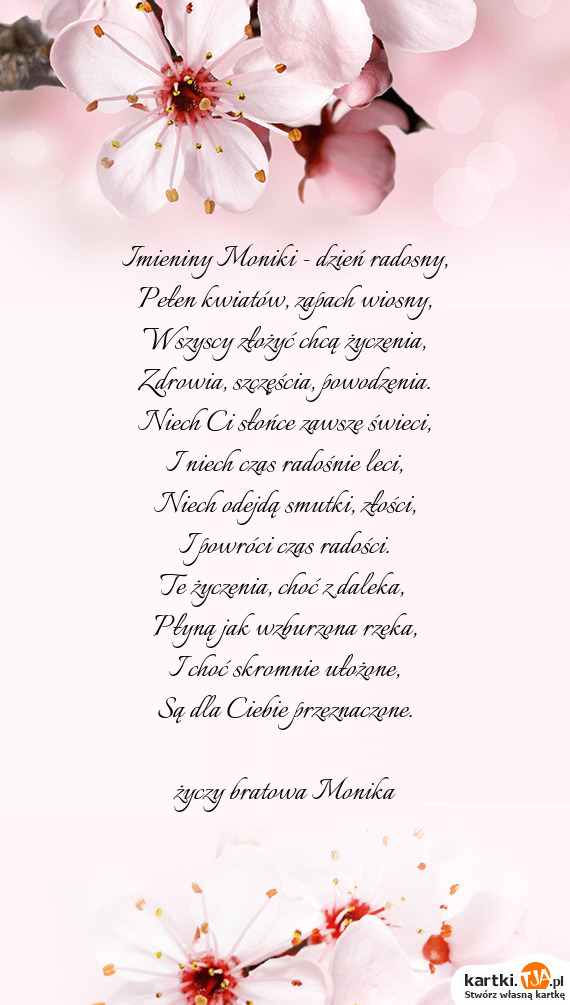 Imieniny Moniki - dzień radosny,
Pełen kwiatów, zapach wiosny,
Wszyscy złożyć chcą życzenia,
Zdrowia, szczęścia, powodzenia.
Niech Ci słońce zawsze świeci,
I niech czas radośnie leci,
Niech odejdą smutki, złości,
I powróci czas radości.
Te życzenia, choć z daleka,
Płyną jak wzburzona rzeka,
I choć skromnie ułożone,
Są dla Ciebie przeznaczone.
życzy bratowa Monika
kartki.TJA.pl
Stwórz własną kartkę